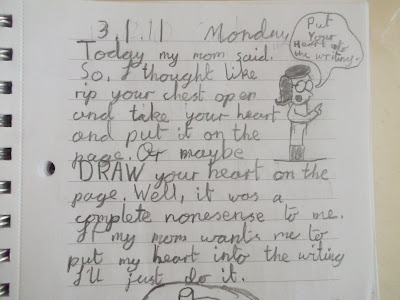 3.1.11 Monday
Today my mom said.
Put
Your
Heart into
the writing.
So, I thought like
rip your chest open
and take your heart
and put it on the
page. Or maybe
DRAW your heart on the
page. Well, it was a
complete nonesense to me.
If my mom wants me to
put my heart into the writing
I'll just do it.